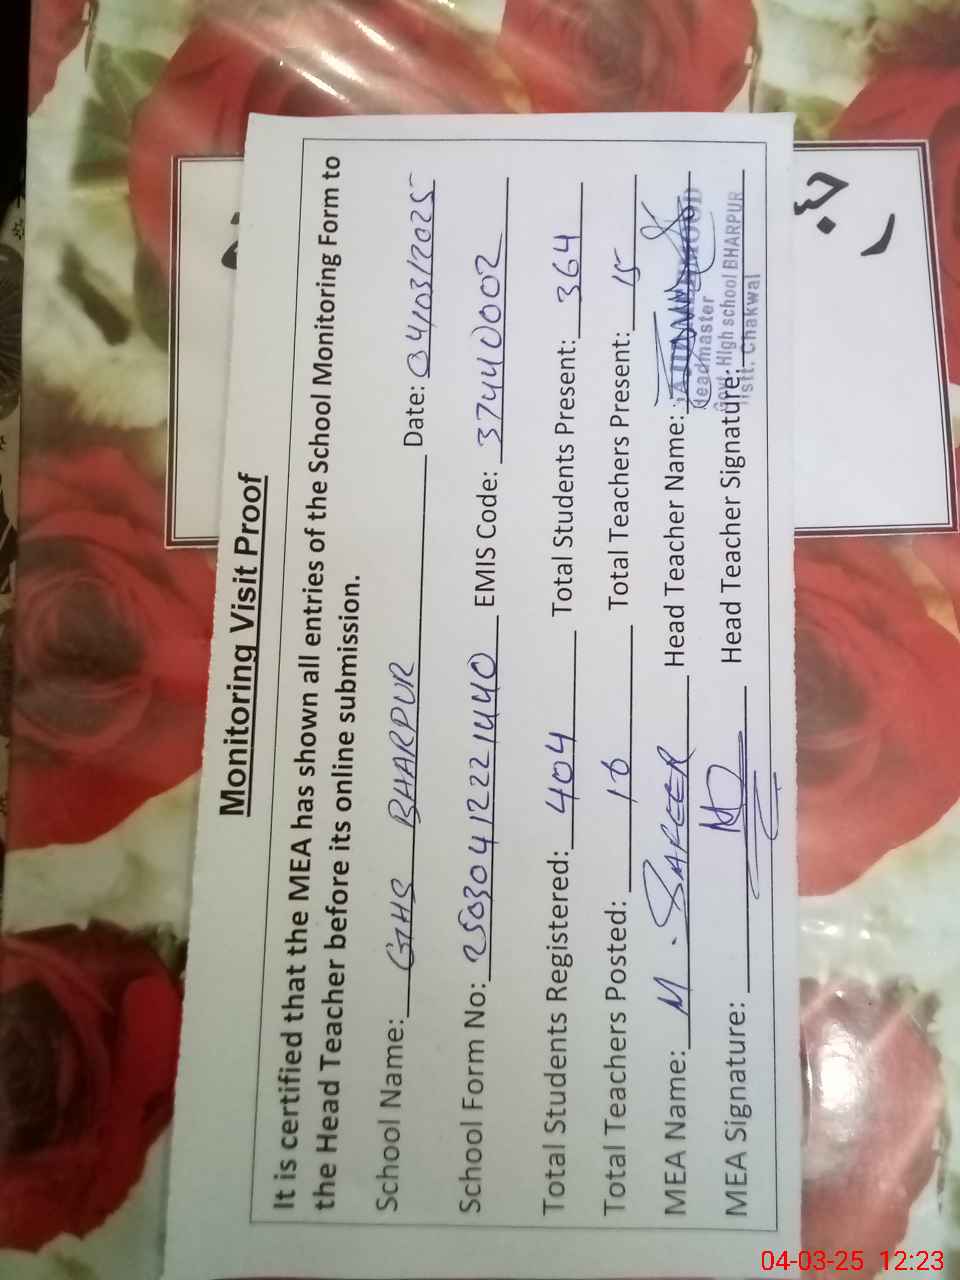 Monitoring Visit Proof
It is certified that the MEA has shown all entries of the School Monitoring Form to
the Head Teacher before its online submission.
School Name: GHS BHARPUR Date: 04/03/2025
School Form No: 25030412221440 EMIS Code: 37440002
Total Students Registered: 404 Total Students Present: 364
Total Teachers Posted: 16 Total Teachers Present: 15
MEA Name: M. SAFEER Head Teacher Name:
Headmaster
Govt. High school BHARPUR
Distt. Chakwal
MEA Signature: Head Teacher Signature:
04-03-25 12:23